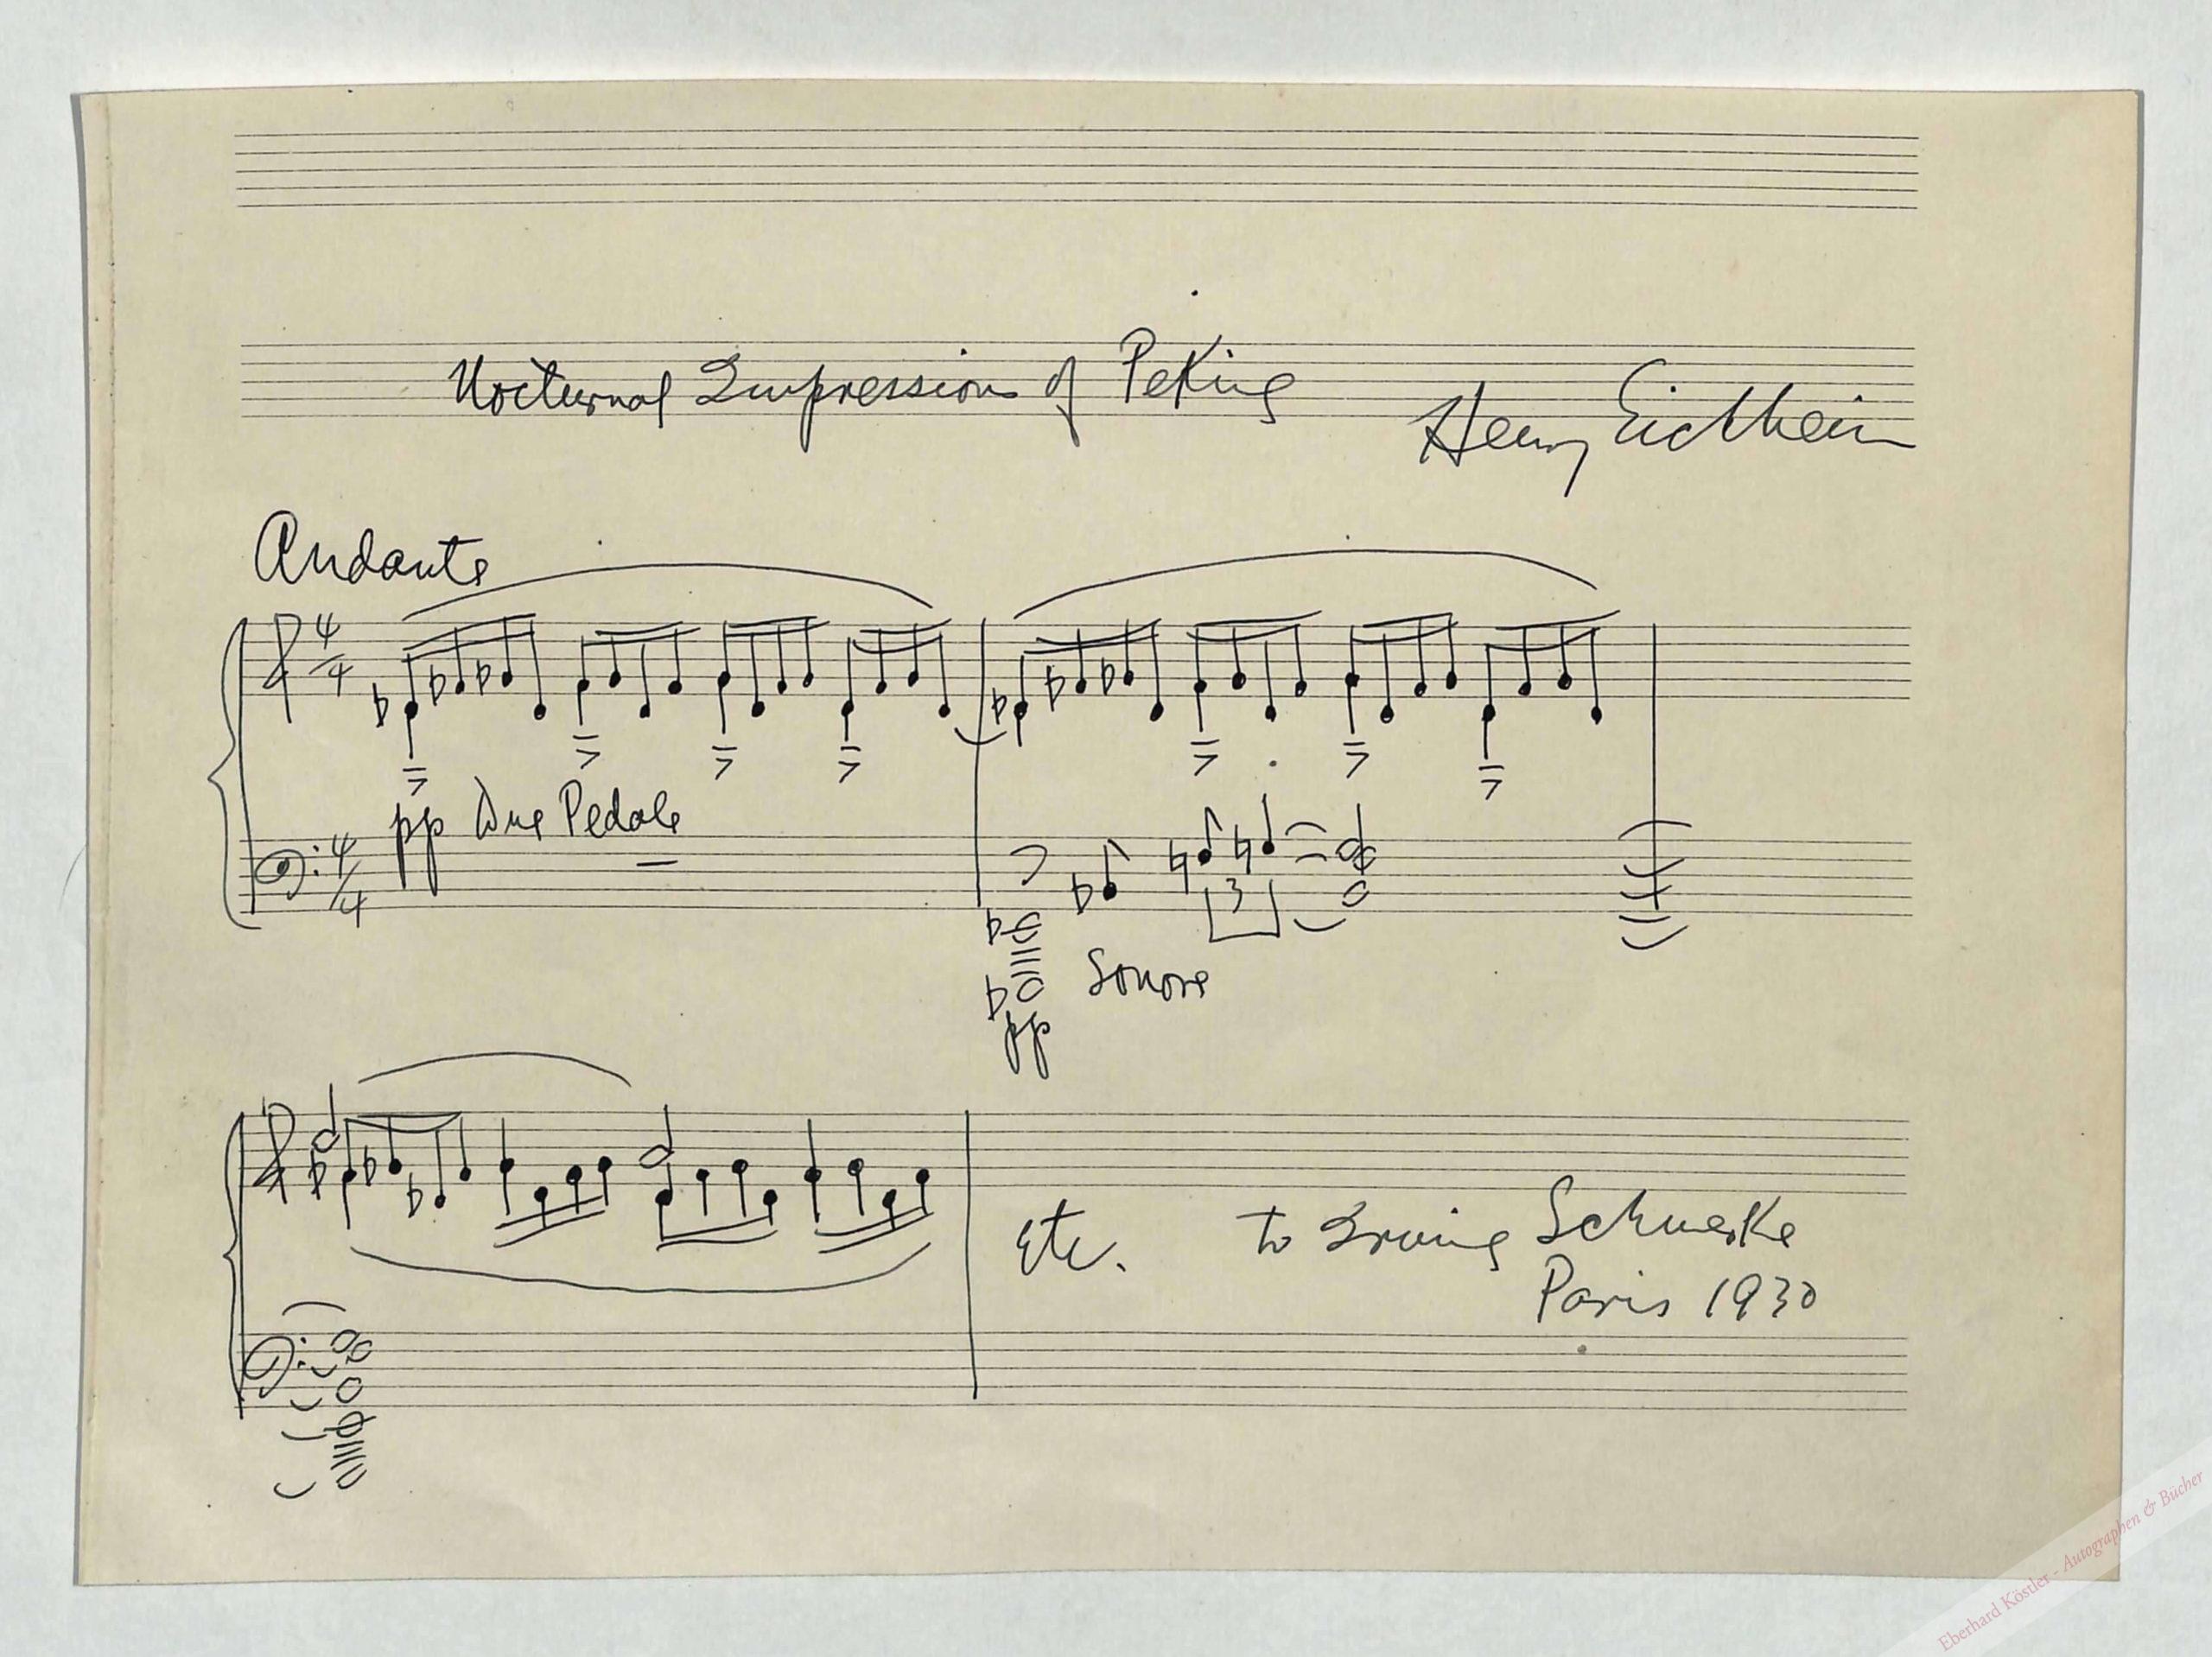 Nocturnal Impressions of Peking
Henry Eichheim
Andante
4/4
pp Due Pedale
4/4
3
Sonore
pp
etc.
to Irving Schwerke
Paris 1930
Eberhard Köstler - Autographen & Bücher